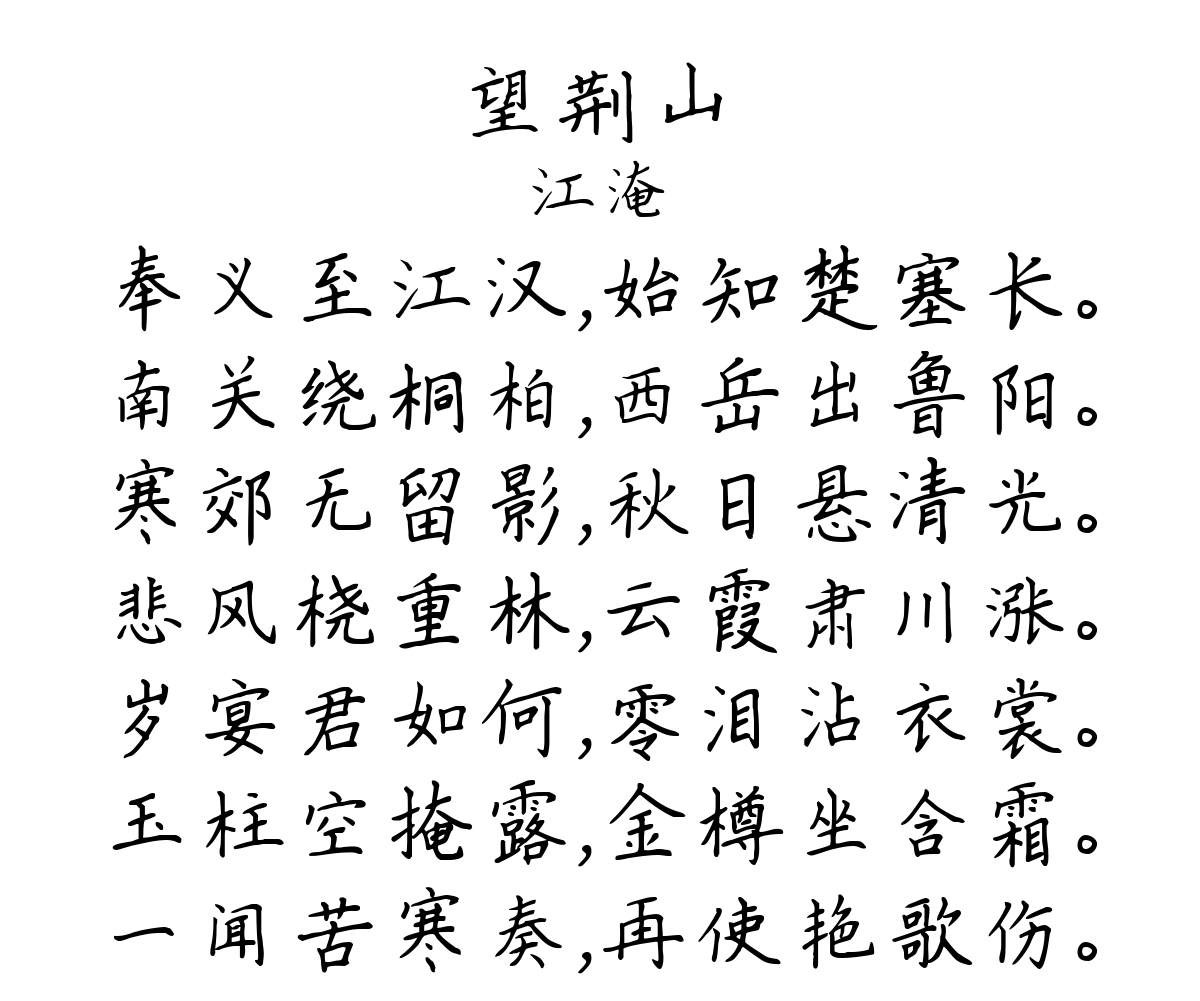 望荆山
江淹
奉义至江汉,始知楚塞长。
南关绕桐柏,西岳出鲁阳。
寒郊无留影,秋日悬清光。
悲风桡重林,云霞肃川涨。
岁宴君如何,零泪沾衣裳。
玉柱空掩露,金樽坐含霜。
一闻苦寒奏,再使艳歌伤。